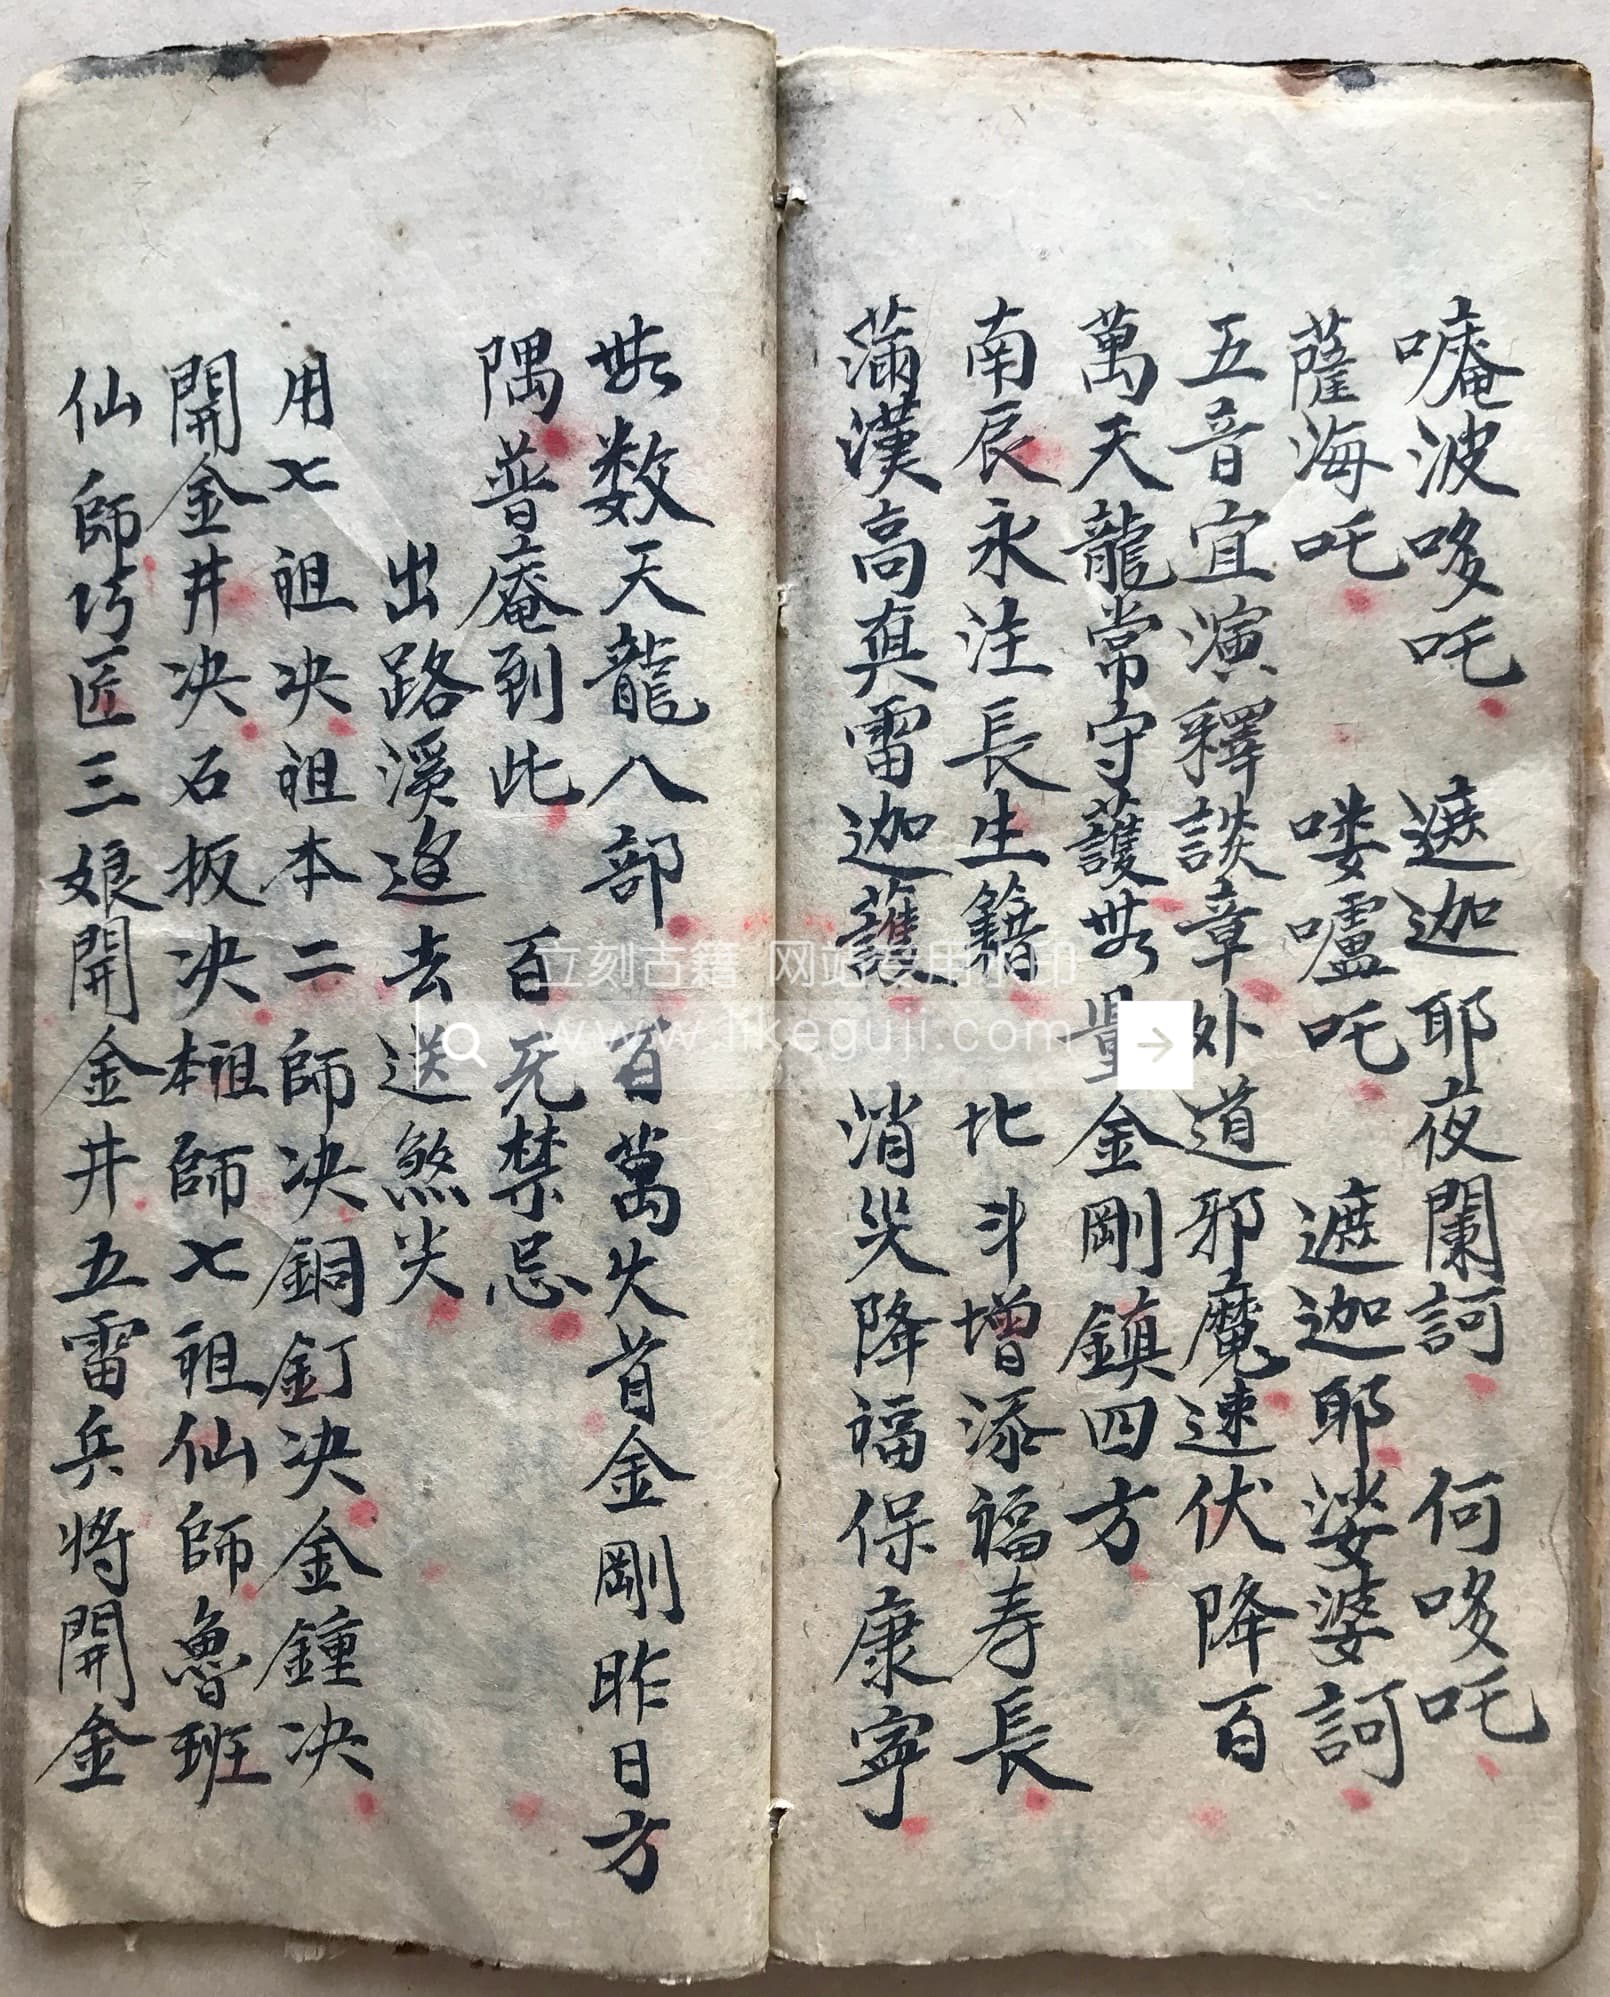 唵波哆吒 遮迦耶夜闌訶 何哆吒
薩海吒 嘍嚧吒 遮迦耶娑婆訶
五音宣演釋談章外道邪魔速伏降百
萬天龍常守護無量金剛鎮四方
南辰永注長生籍 北斗增添福寿長
滿漢高真雷迦護 消災降福保康寧
無数天龍八部 百萬火首金剛昨日方
隅普庵到此 百无禁忌
出路溪邊去送煞尖
用七祖决祖本二師决銅釘决金鐘决
開金井决石板决本祖師七祖仙師魯班
仙師巧匠三娘開金井五雷兵將開金
立刻古籍 网站专用水印
www.likeguji.com